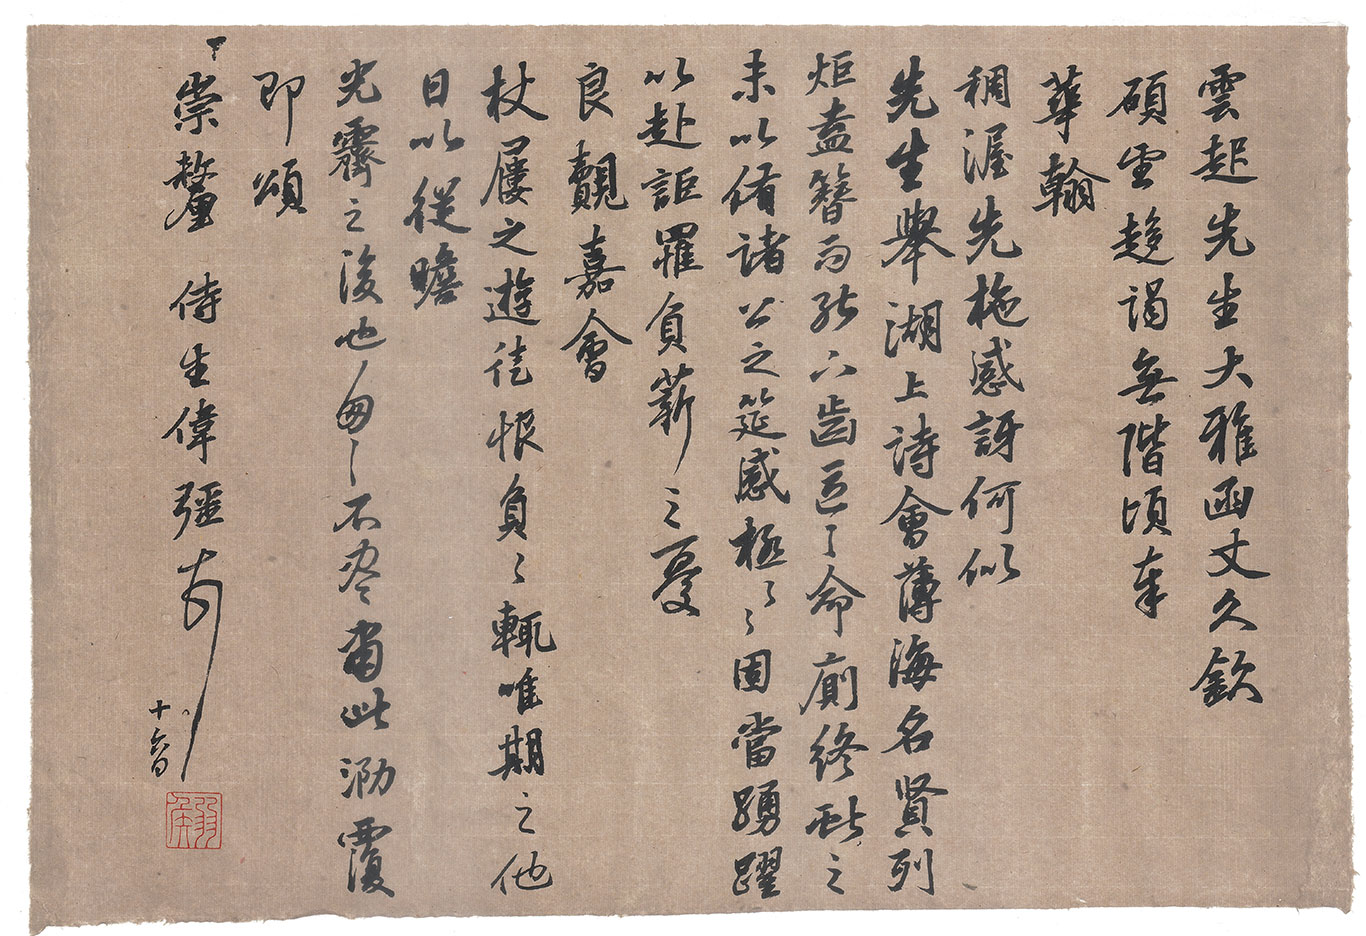 雲起先生大雅函丈久欽
碩望趨謁無階頃奉
華翰
稠渥先施感訝何似
先生舉湖上詩會薄海名賢列
炬盍簪而能不齒區了命廁終駘之
末以侑諸公之筵感極〻固當踴躍
以赴詎罹負薪之憂
良覿嘉會
杖屨之遊徒恨負〻輒唯期之他
日以從瞻
光霽之後也匆〻不盡耑此泐覆
即頌
崇釐 侍生偉彊
十六日